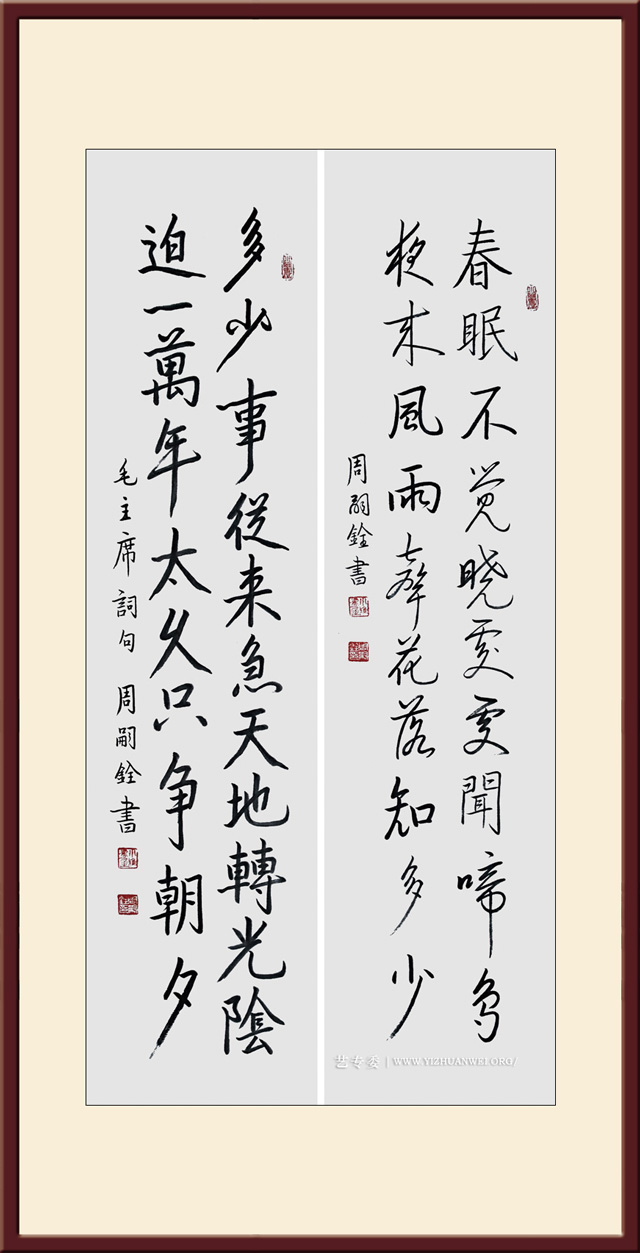 春眠不觉晓处处闻啼鸟
夜来風雨聲花落知多少
周嗣銓書
多少事從来急天地轉光陰
迫一萬年太久只争朝夕
毛主席詞句 周嗣銓書
艺专委 | WWW.YIZHUANWEI.ORG/